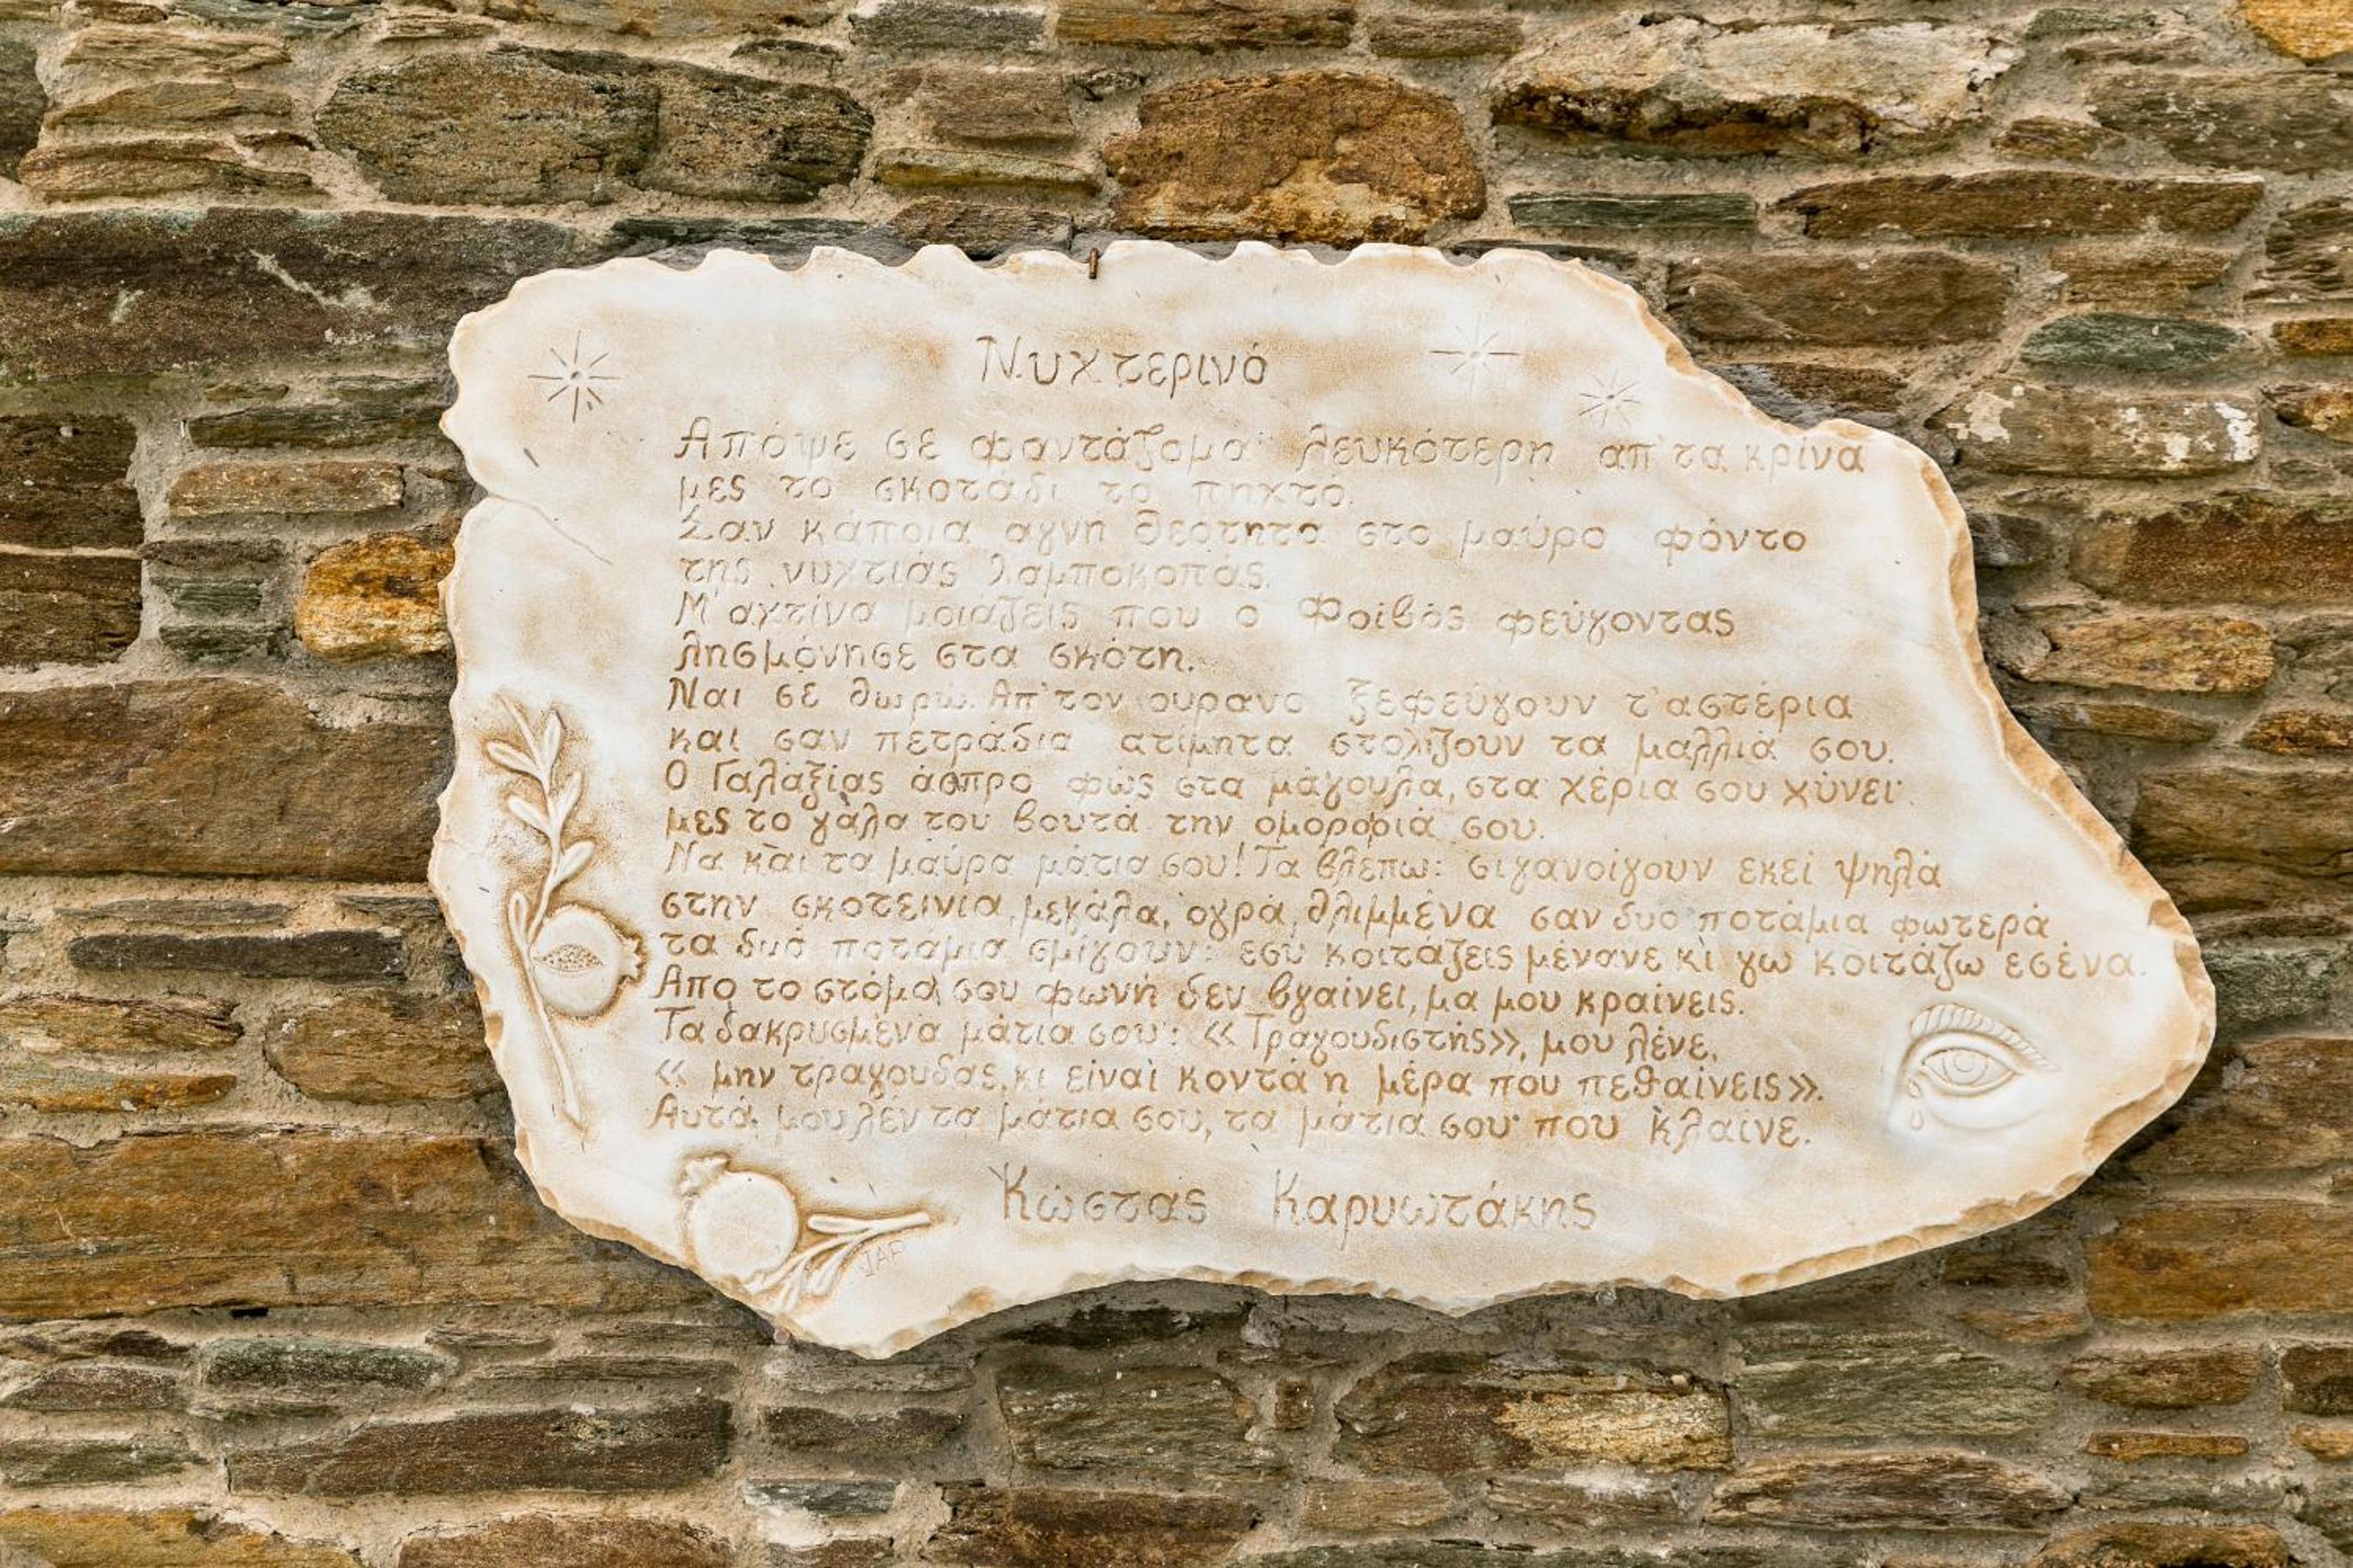 Νυχτερινό
Απόψε σε φαντάζομαι λευκότερη απ' τα κρίνα
μες το σκοτάδι το πηχτό.
Σαν κάποια αγνή θεότητα στο μαύρο φόντο
της νυχτιάς λαμποκοπάς.
Μ' αχτίνα μοιάζεις που ο Φοίβος φεύγοντας
λησμόνησε στα σκότη.
Ναι σε θωρώ. Απ' τον ουρανό ξεφεύγουν τ' αστέρια
και σαν πετράδια ατίμητα στολίζουν τα μαλλιά σου.
Ο Γαλαξίας άσπρο φώς στα μάγουλα, στα χέρια σου χύνει·
μες το γάλα του βουτά την ομορφιά σου.
Να και τα μαύρα μάτια σου! Τα βλέπω: σιγανοίγουν εκεί ψηλά
στην σκοτεινιά, μεγάλα, ογρά, θλιμμένα σαν δυο ποτάμια φωτερά
τα δυό ποτάμια σμίγουν: εσύ κοιτάζεις μένανε κι γω κοιτάζω εσένα.
Απο το στόμα σου φωνή δεν βγαίνει, μα μου κραίνεις.
Τα δακρυσμένα μάτια σου: «Τραγουδιστής», μου λένε,
« μην τραγουδάς, κι είναι κοντά η μέρα που πεθαίνεις».
Αυτά μου λέν τα μάτια σου, τα μάτια σου που κλαίνε.
Κώστας Καρυωτάκης
ΙΑΓ